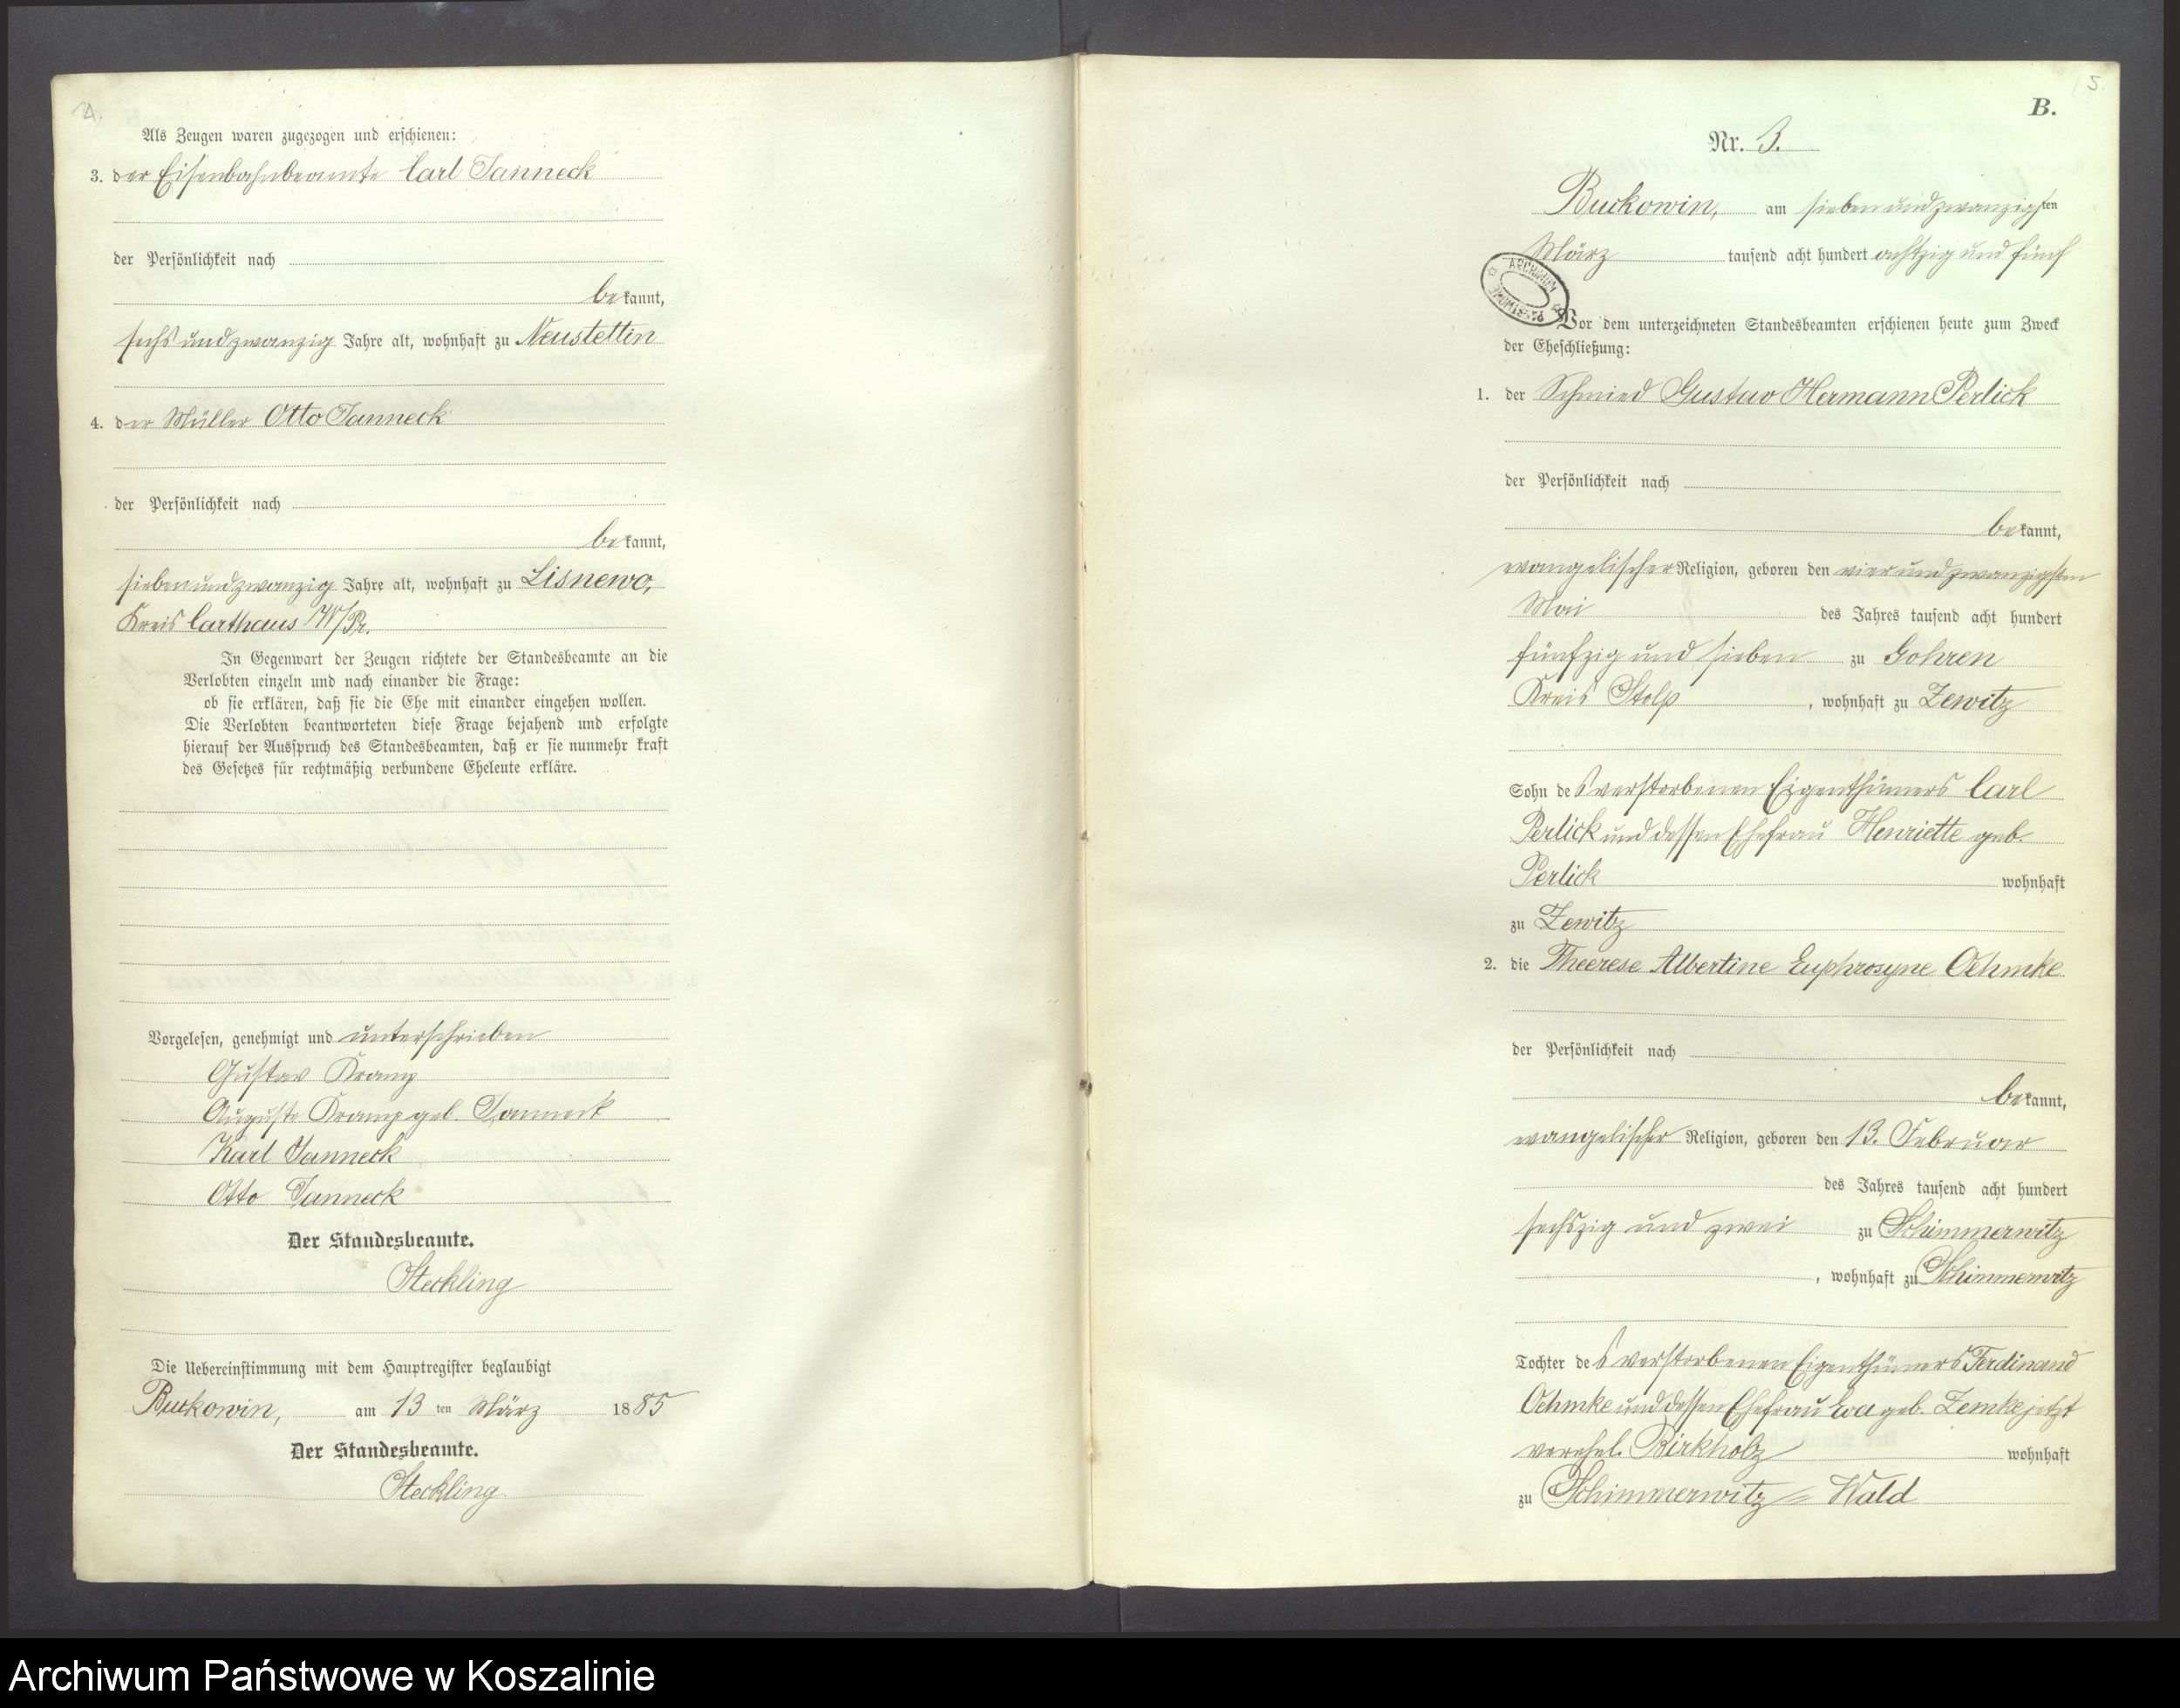 4.
Als Zeugen waren zugezogen und erschienen:
3. der Eisenbahnbeamte Carl Janneck
der Persönlichkeit nach
bekannt,
sechs und zwanzig Jahre alt, wohnhaft zu Neustettin
4. der Müller Otto Janneck
der Persönlichkeit nach
bekannt,
sieben und zwanzig Jahre alt, wohnhaft zu Lisnewo,
Kreis Carthaus W/Pr.
In Gegenwart der Zeugen richtete der Standesbeamte an die
Verlobten einzeln und nach einander die Frage:
ob sie erklären, daß sie die Ehe mit einander eingehen wollen.
Die Verlobten beantworteten diese Frage bejahend und erfolgte
hierauf der Ausspruch des Standesbeamten, daß er sie nunmehr kraft
des Gesetzes für rechtmäßig verbundene Eheleute erkläre.
Vorgelesen, genehmigt und unterschrieben
Gustav Kramp
Auguste Kramp geb. Janneck
Karl Janneck
Otto Janneck
Der Standesbeamte.
Steckling
Die Uebereinstimmung mit dem Hauptregister beglaubigt
Buckowin, am 13 ten März 1885
Der Standesbeamte.
Steckling.
5.
B.
Nr. 3.
Buckowin, am sieben und zwanzigsten
März tausend acht hundert achtzig und fünf
ARCHIWUM PAŃSTWOWE
Vor dem unterzeichneten Standesbeamten erschienen heute zum Zweck
der Eheschließung:
1. der Schmied Gustav Hermann Perlick
der Persönlichkeit nach
bekannt,
evangelischer Religion, geboren den vier und zwanzigsten
Mai des Jahres tausend acht hundert
fünfzig und sieben zu Gohren
Kreis Stolp, wohnhaft zu Zewitz
Sohn des verstorbenen Eigenthümers Carl
Perlick und dessen Ehefrau Henriette geb.
Perlick wohnhaft
zu Zewitz
2. die Theerese Albertine Euphrosyne Oehmke
der Persönlichkeit nach
bekannt,
evangelischer Religion, geboren den 13. Februar
des Jahres tausend acht hundert
sechszig und zwei zu Schimmerwitz
, wohnhaft zu Schimmerwitz
Tochter des verstorbenen Eigenthümers Ferdinand
Oehmke und dessen Ehefrau Eva geb. Zemke jetzt
verehel. Birkholz wohnhaft
zu Schimmerwitz = Wald
Archiwum Państwowe w Koszalinie